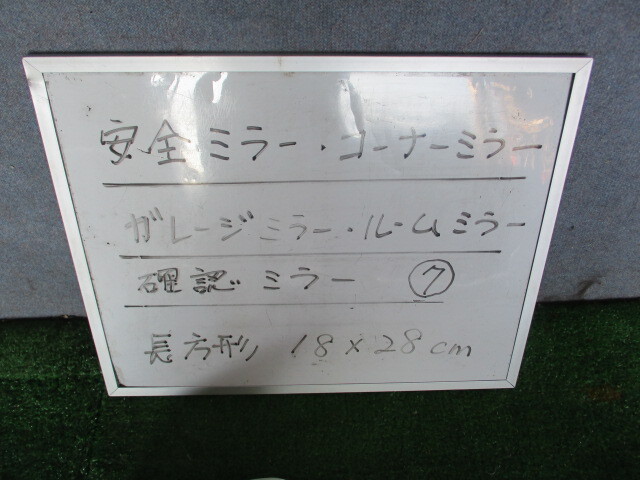 安全ミラー・コーナーミラー
ガレージミラー・ルームミラー
確認ミラー ⑦
長方形 18×28cm